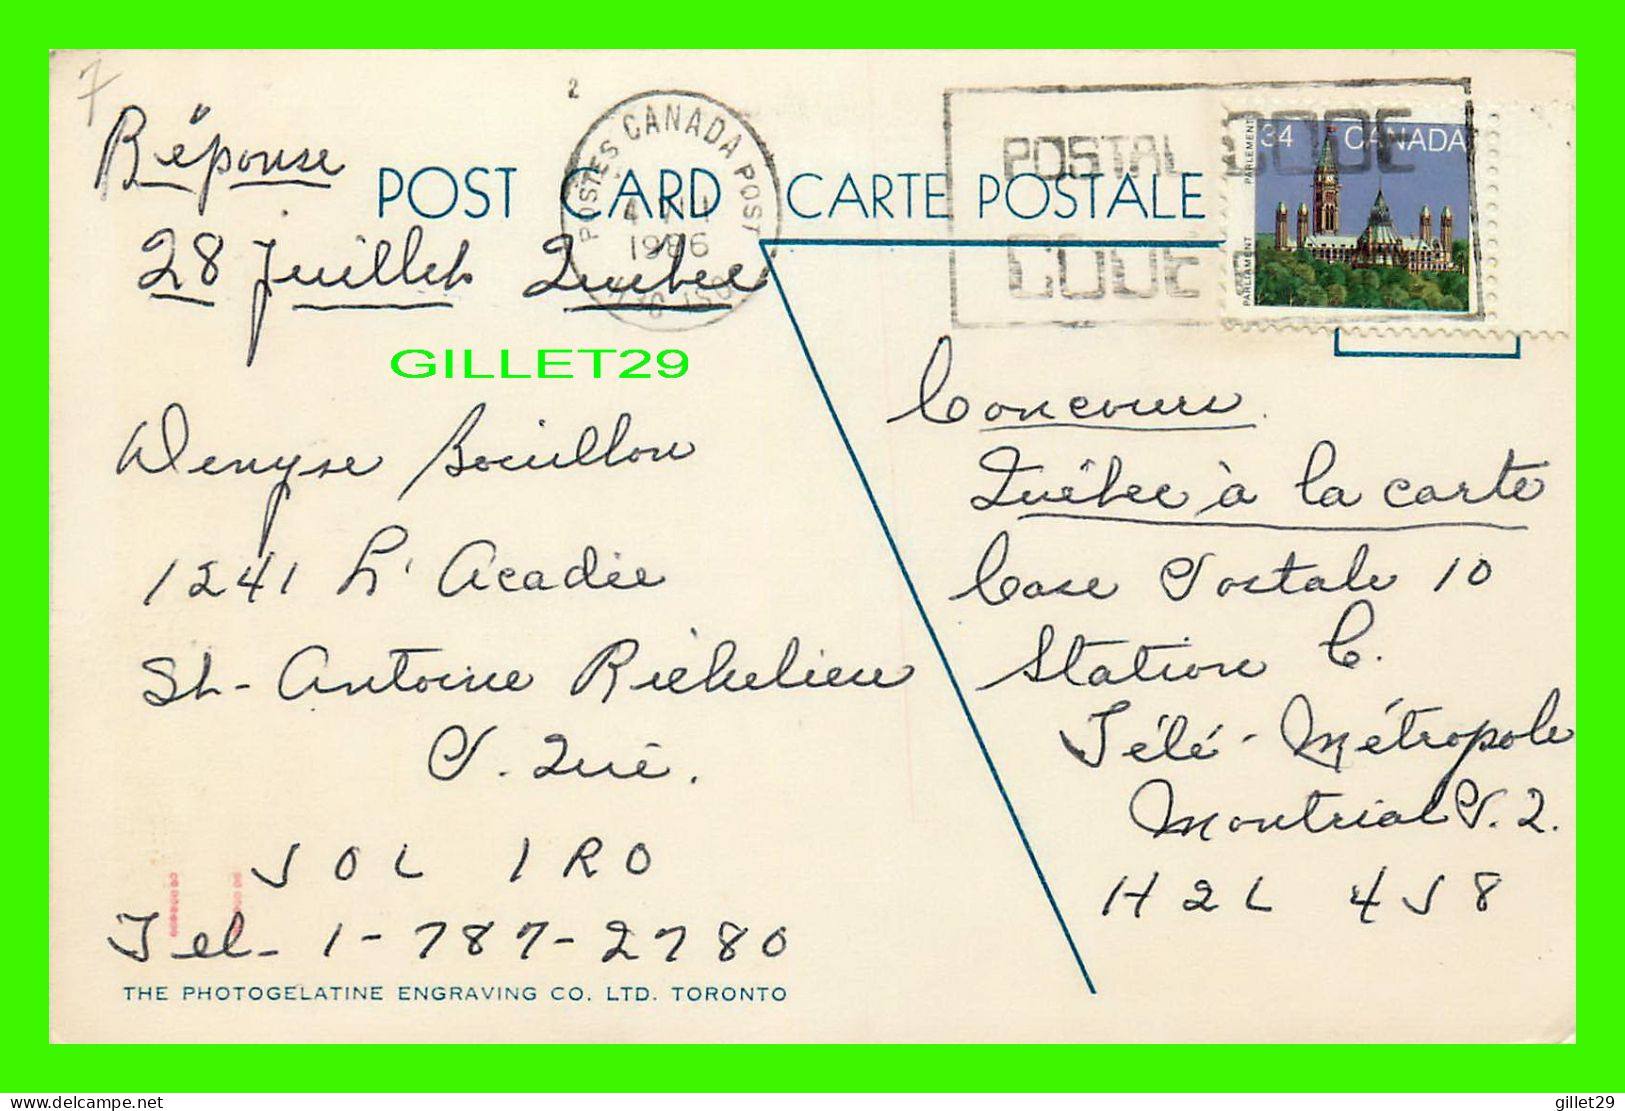 7
2
Réponse
28 Juillet Québec
POST CARD CARTE POSTALE
POSTES CANADA POST
1986
POSTAL CODE
CODE
34 CANADA
PARLIAMENT PARLEMENT
GILLET29
Denyse Bouillon
1241 L'Acadie
St-Antoine Richelieu
P. Qué.
J0L 1R0
Tel- 1-787-2780
THE PHOTOGELATINE ENGRAVING CO. LTD. TORONTO
Concours
Québec à la carte
Case Postale 10
Station C.
Télé-Métropole
Montréal P.Q.
H2L 4J8
www.delcampe.net
gillet29